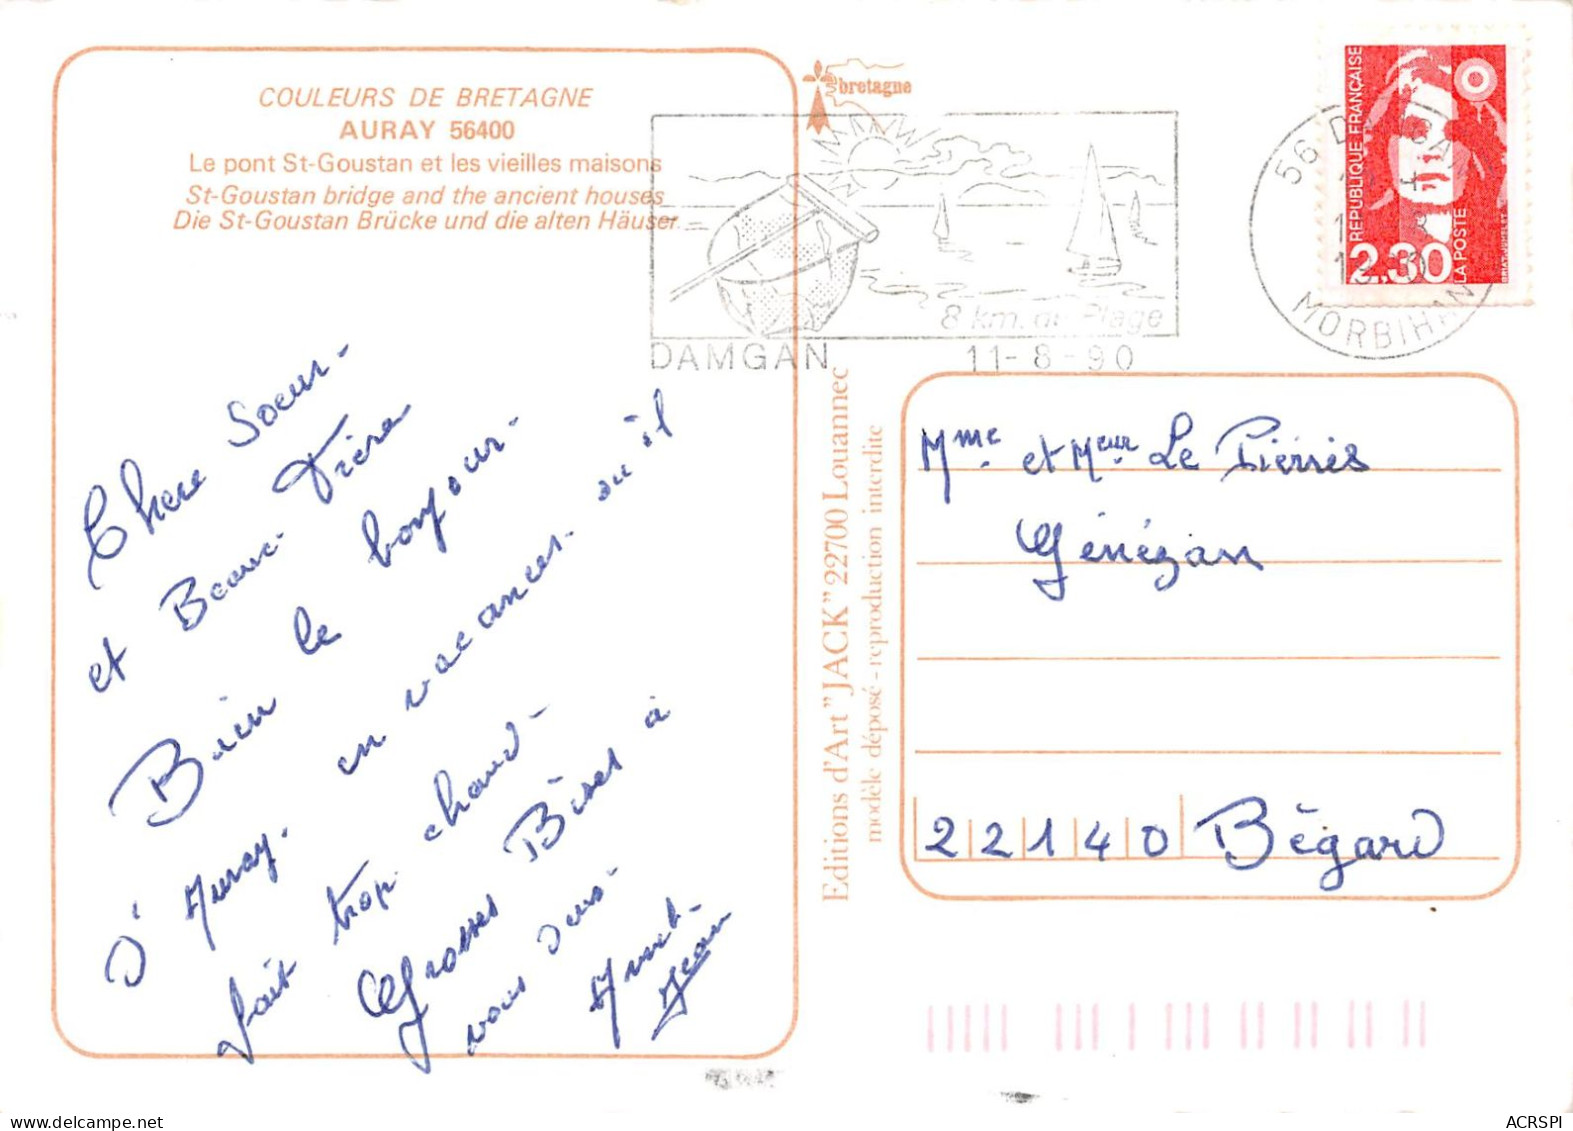 COULEURS DE BRETAGNE
AURAY 56400
Le pont St-Goustan et les vieilles maisons
St-Goustan bridge and the ancient houses
Die St-Goustan Brücke und die alten Häuser
bretagne
8 km. de Plage
DAMGAN 11-8-90
56 DAMGAN
MORBIHAN
REPUBLIQUE FRANÇAISE
2,30
LA POSTE
Chere Soeur-
et Beau-Frère
Bien le bonjour-
d'Auray. en vacances. ou il
fait trop chaud-
Grosses Bises à
vous deux-
Jean
Editions d'Art "JACK" 22700 Louannec
modèle déposé - reproduction interdite
Mme et Meur Le Pierrès
Génézan
22140 Bégard
ACRSPI